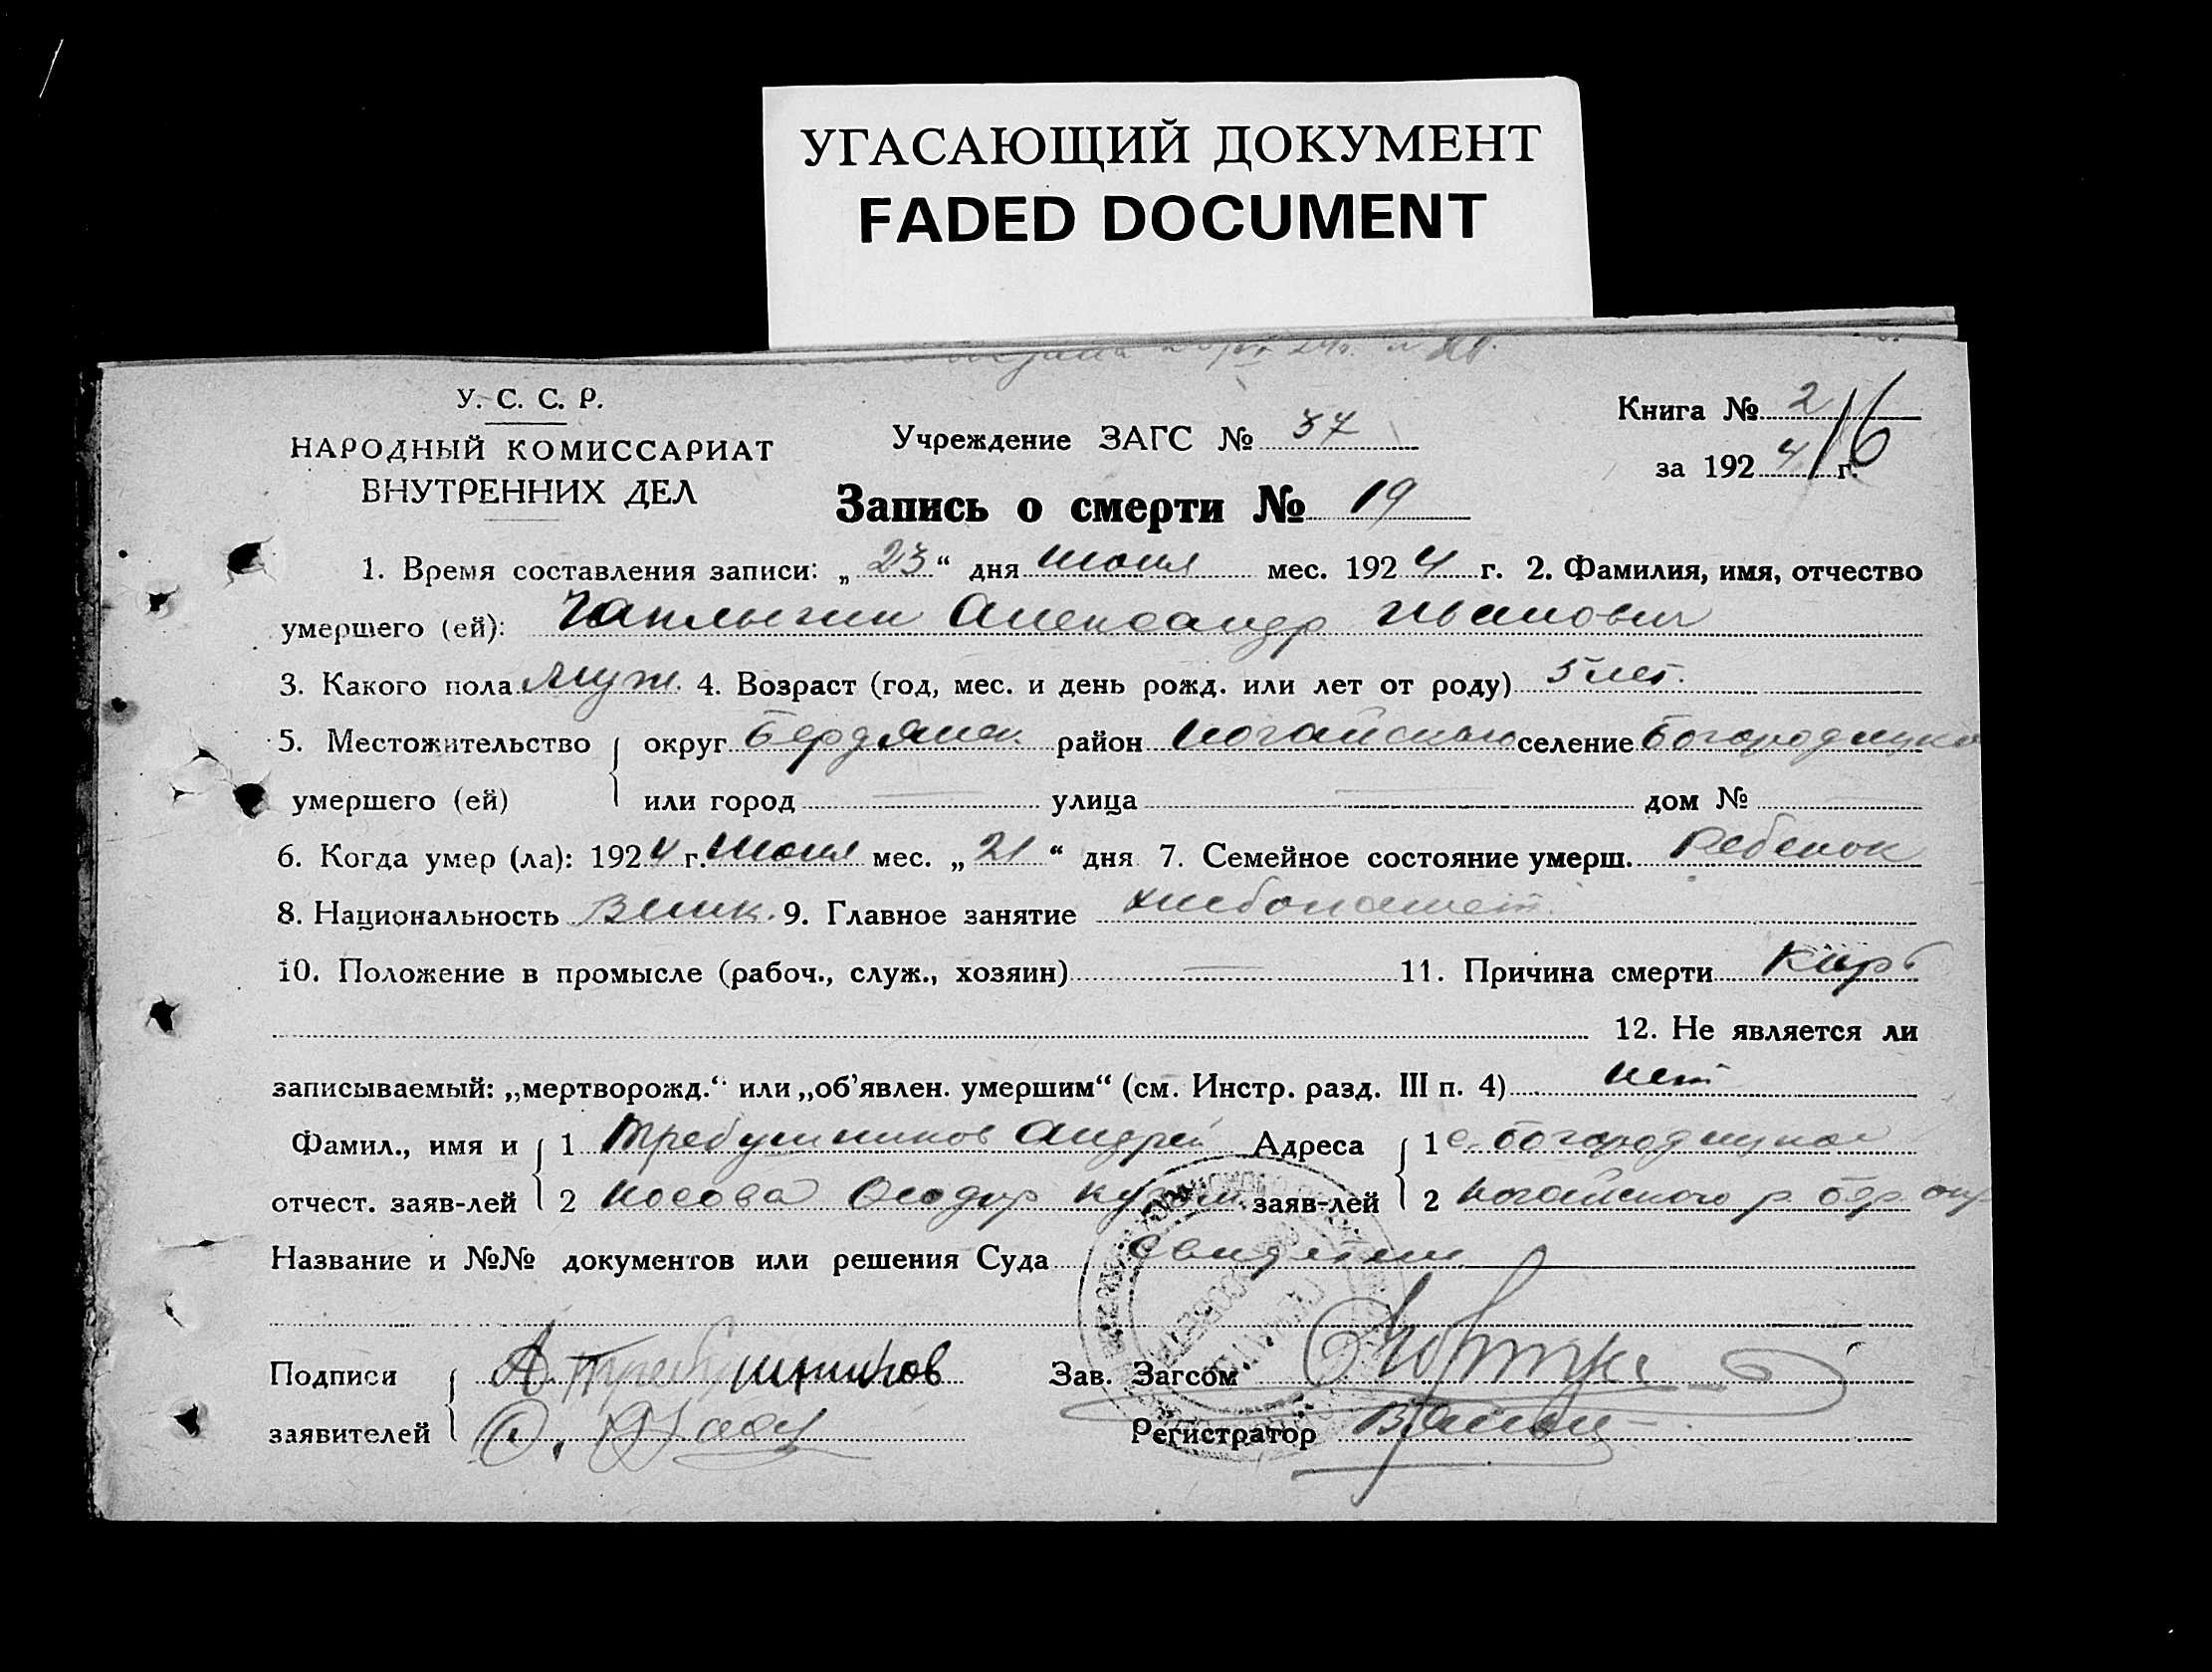 УГАСАЮЩИЙ ДОКУМЕНТ
FADED DOCUMENT
У. С. С. Р.
НАРОДНЫЙ КОМИССАРИАТ
ВНУТРЕННИХ ДЕЛ
Учреждение ЗАГС № 37
Книга № 2
за 1924 г.
16
Запись о смерти № 19
1. Время составления записи: „23“ дня июня мес. 1924 г. 2. Фамилия, имя, отчество
умершего (ей): Чаплыгин Александр Иванович
3. Какого пола муж. 4. Возраст (год, мес. и день рожд. или лет от роду) 5 лет.
5. Местожительство округ Бердянск. район Ногайского селение Богородицкое
умершего (ей) или город — улица — дом №
6. Когда умер (ла): 1924 г. июня мес. „21“ дня 7. Семейное состояние умерш. Ребенок
8. Национальность Велик. 9. Главное занятие хлебопашест.
10. Положение в промысле (рабоч., служ., хозяин) — 11. Причина смерти
12. Не является ли
записываемый: „мертворожд.“ или „об’явлен. умершим“ (см. Инстр. разд. III п. 4) нет
Фамил., имя и 1 Требушников Андрей Адреса 1 с. Богородицкое
отчест. заяв-лей 2 Косова Феодор заяв-лей 2 Ногайского р. Бер. окр
Название и №№ документов или решения Суда свидетели
Подписи А. Требушников Зав. Загсом
заявителей Регистратор